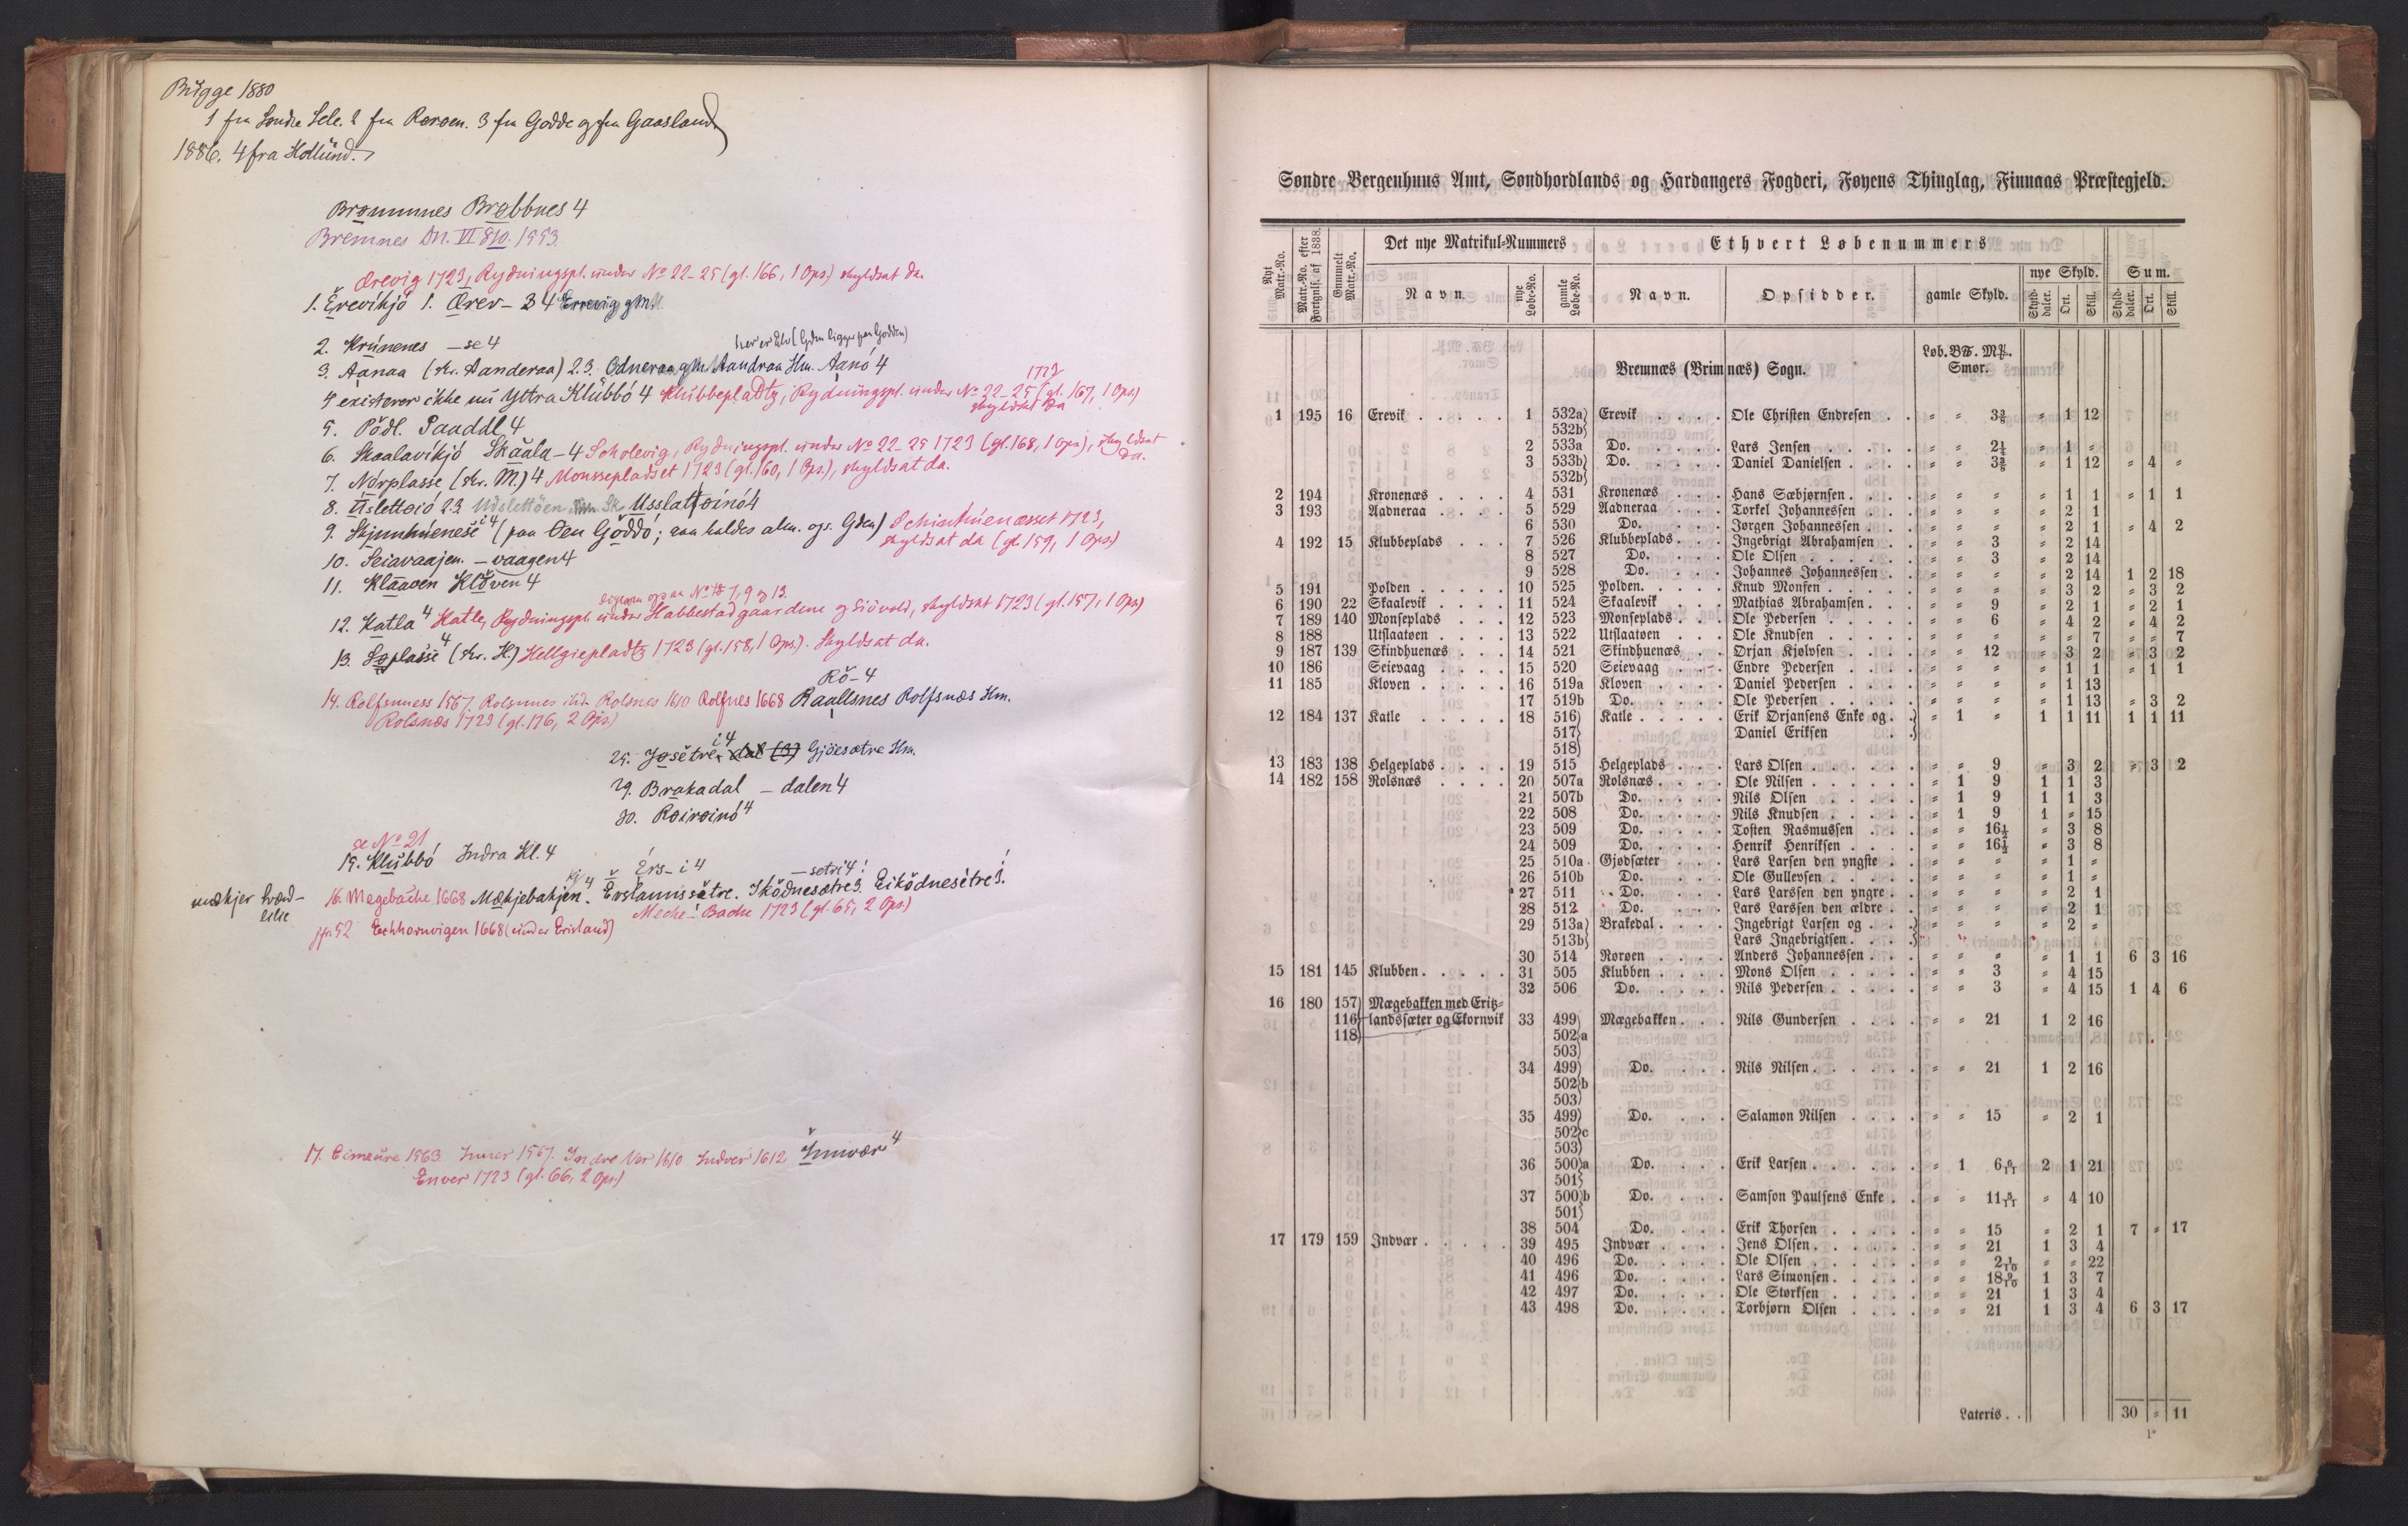 Bugge 1880
1 fra Søndre Sele. 2 fra Rørøen. 3 fra Godde og fra Gaasland
1886. 4 fra Hollund.
Brømmnes Brøbbnes 4
Bremnes DN. VI 810. 1553.
Ærevig 1723, Rydningspl. under No 22-25 (gl. 166, 1 Ops.) skyldsat da.
1. Erevikjó 1. Ærev- 3 4 Errevig gm.
2. Krúnenes -se 4
her er Elv (Gden ligger paa Godden)
3. Aanaa (skr. Aanderaa) 2.3. Odneraa gM. Aandraa Hm. Aanó 4
4 existerer ikke nu Yttra Klúbbó 4 Klubbepladtz, Rydningspl. under No 22-25 1723 (gl. 167, 1 Ops.)
skyldsat da
5. Pödl. Paaddl 4
6. Skaalavikjó Skäala- 4 Scholevig, Rydningspl. under No 22-25 1723 (gl. 168, 1 Ops.), skyldsat da.
7. Nórplasse (skr. M.) 4 Monssepladset 1723 (gl. 160, 1 Ops.), skyldsat da.
8. Úslettoió 2.3 Udslettöen Usslattoinó 4
9. Skjunhúenese i 4 (paa Øen Göddo; saa kaldes alm. ogs. Gden) Schinhuenæsset 1723,
skyldsat da (gl. 159, 1 Ops.)
10. Seiavaajen. -vaagen 4
11. Klaaven Klöven 4
ligesaa ogsaa No 7, 9 og 13.
12. Katla 4 Katle, Rydningspl. under Habbestadgaardene og Siövold, skyldsat 1723 (gl. 157, 1 Ops)
13. Søplasse 4 (skr. H.) Hellgiepladtz 1723 (gl. 158, 1 Ops.). Skyldsat da.
Rö- 4
14. Rolfsnness 1567. Rolsnnes ibd. Rolsnes 1610 Rolfnes 1668 Raallsnes Rolfsnæs Hm.
Rolsnæs 1723 (gl. 176, 2 Ops.)
25. Jøsëtre i 4 Gjöesætre Hm.
29. Brakadal - dalen 4
30. Roiroinó 4
se No 21
15. Klubbó Indra Kl. 4
Ers- i 4 -setri 4!
mækjer hved-
lilie
16. Mægebache 1668 Mækjebakjen 4. Erslannssætre. Iködnesætre 3. Eiködnesétre 3.
Meche-Bache 1723 (gl. 65, 2 Ops.)
jfr 52 Echhornvigen 1668 (under Erisland)
17. Eimeure 1563. Inner 1567. Indre Vær 1610 Indver 1612 Innvær 4
Enver 1723 (gl. 66, 2 Ops.)
Søndre Bergenhuus Amt, Søndhordlands og Hardangers Fogderi, Føyens Thinglag, Finnaas Præstegjeld.
Nyt Matr.-No. Matr.-No. efter Forignis. af 1838. Gammelt Matr.-No. Det nye Matrikul-Nummers Ethvert Løbenummers
nye Skyld. Sum.
Navn. nye Løbe-No. gamle Løbe-No. Navn. Opsidder. gamle Skyld. Skylddaler. Ort. Skill. Skylddaler. Ort. Skill.
Bremnæs (Brimnæs) Sogn. Løb. B℔. M℔. Smør.
1 195 16 Erevik 1 532a Erevik Ole Christen Endresen " " 3⅜ " 1 12
532b
2 533a Do. Lars Jensen " " 2¼ " 1 "
3 533b Do. Daniel Danielsen " " 3⅜ " 1 12 " 4 "
532b
2 194 Kronenæs 4 531 Kronenæs Hans Sæbjørnsen " " " " 1 1 " 1 1
3 193 Aadneraa 5 529 Aadneraa Torkel Johannessen " " " " 2 1
6 530 Do. Jørgen Johannessen " " " " 2 1 " 4 2
4 192 15 Klubbeplads 7 526 Klubbeplads Ingebrigt Abrahamsen " " 3 " 2 14
8 527 Do. Ole Olsen " " 3 " 2 14
9 528 Do. Johannes Johannessen " " " " 2 14 1 2 18
5 191 Polden 10 525 Polden. Knud Monsen " " " " 3 2 " 3 2
6 190 22 Skaalevik 11 524 Skaalevik Mathias Abrahamsen " " 9 " 2 1 " 2 1
7 189 140 Monseplads 12 523 Monseplads Ole Pedersen " " 6 " 4 2 " 4 2
8 188 Utslaatøen 13 522 Utslaatøen Ole Knudsen " " " " " 7 " " 7
9 187 139 Skindhuenæs 14 521 Skindhuenæs Ørjan Kjølvsen " " 12 " 3 2 " 3 2
10 186 Seievaag 15 520 Seievaag Endre Pedersen " " " " 1 1 " 1 1
11 185 Kloven 16 519a Kloven Daniel Pedersen " " " " 1 13
17 519b Do. Ole Pedersen " " " " 1 13 " 3 2
12 184 137 Katle 18 516 Katle Erik Ørjansens Enke og " 1 " 1 1 11 1 1 11
517 Daniel Eriksen
518
13 183 138 Helgeplads 19 515 Helgeplads Lars Olsen " " 9 " 3 2 " 3 2
14 182 158 Rolsnæs 20 507a Rolsnæs Ole Nilsen " 1 9 1 1 3
21 507b Do. Nils Olsen " 1 9 1 1 3
22 508 Do. Nils Knudsen " 1 9 1 " 15
23 509 Do. Tosten Rasmussen " " 16½ " 3 8
24 509 Do. Henrik Henriksen " " 16½ " 3 8
25 510a Gjødsæter Lars Larsen den yngste " " " " 1 "
26 510b Do. Ole Gullevsen " " " " 1 "
27 511 Do. Lars Larssen den yngre " " " " 2 1
28 512 Do. Lars Larssen den ældre " " " " 2 1
29 513a Brakedal Ingebrigt Larsen og " " " " 2 "
513b Lars Ingebrigtsen
30 514 Rørøen Anders Johannessen " " " " 1 1 6 3 16
15 181 145 Klubben 31 505 Klubben Mons Olsen " " 3 " 4 15
32 506 Do. Nils Pedersen " " 3 " 4 15 1 4 6
16 180 157 Mægebakken med Eritz-
116 landssæter og Ekornvik 33 499 Mægebakken Nils Gundersen " " 21 1 2 16
118 502a
503
34 499 Do. Nils Nilsen " " 21 1 2 16
502b
503
35 499 Do. Salamon Nilsen " " 15 " 2 1
502c
503
36 500a Do. Erik Larsen " 1 6 6/11 2 1 21
501
37 500b Do. Samson Paulsens Enke " " 11 5/11 " 4 10
501
38 504 Do. Erik Thorsen " " 15 " 2 1 7 " 17
17 179 159 Indvær 39 495 Indvær Jens Olsen " " 21 1 3 4
40 496 Do. Ole Olsen " " 2 1/10 " " 22
41 496 Do. Lars Simonsen " " 18 9/10 1 3 7
42 497 Do. Ole Størksen " " 21 1 3 4
43 498 Do. Torbjørn Olsen " " 21 1 3 4 6 3 17
Lateris 30 " 11
1*